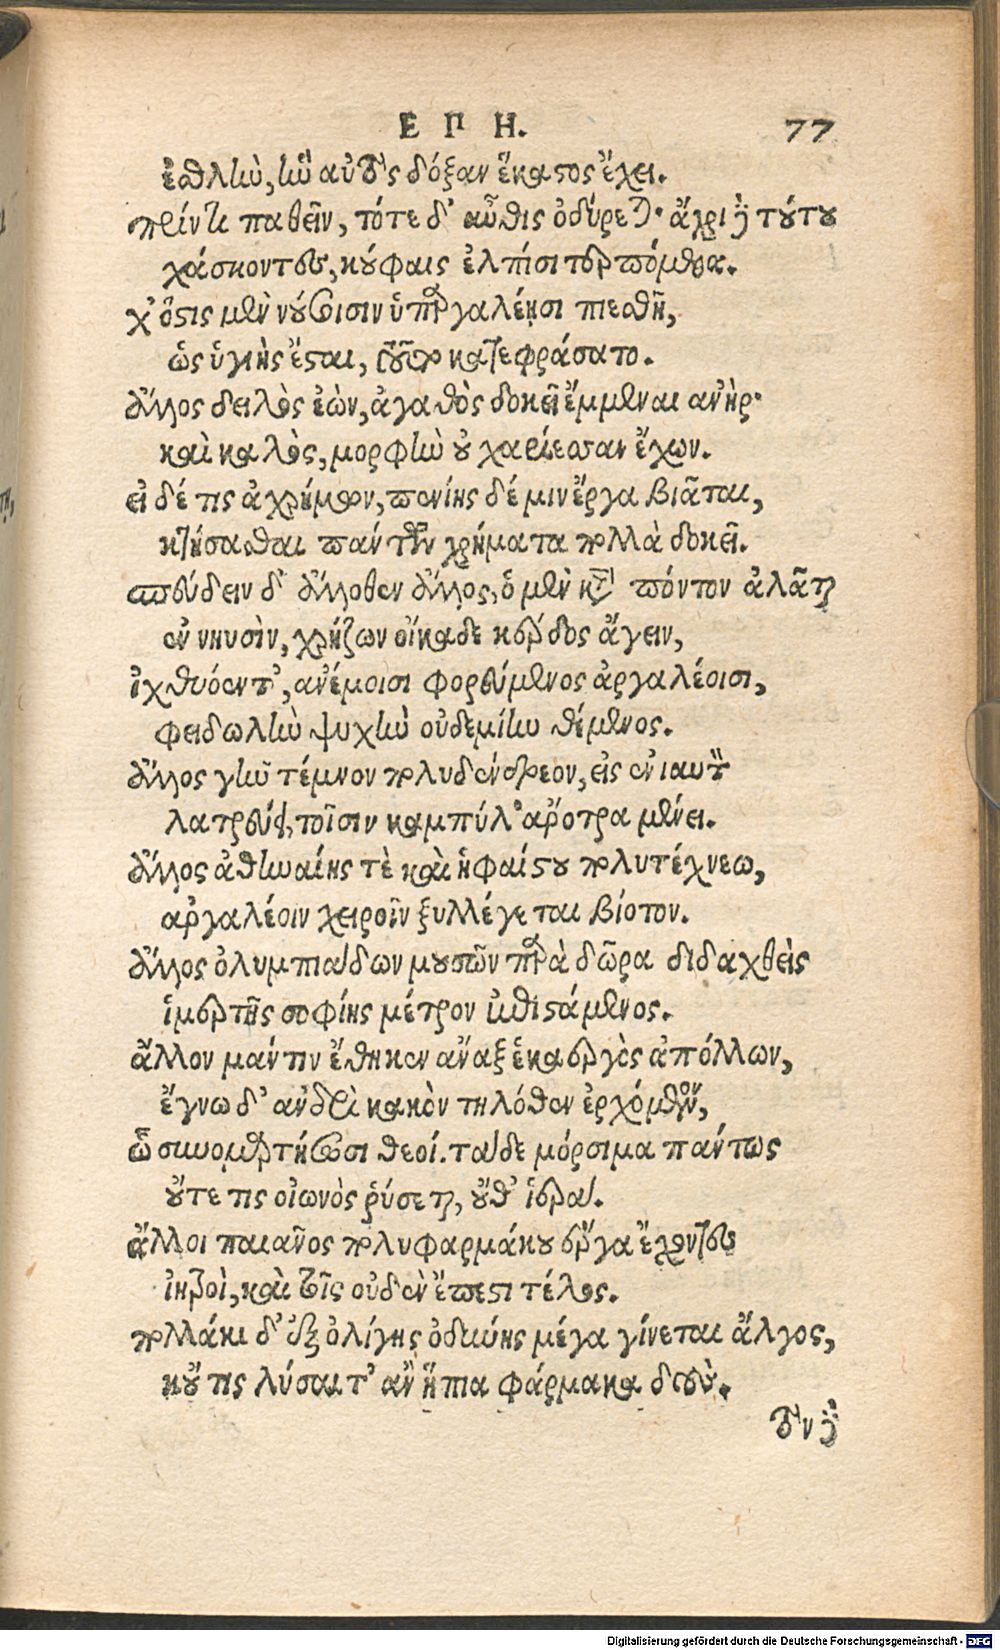 ΕΠΗ. 77
ἐσθλὴν, ἣν αὐτὸς δόξαν ἕκαστος ἔχει.
πρίν τι παθεῖν, τότε δ' αὖθις ὀδύρεται· ἄχρι δὲ τούτου
χάσκοντες, κούφαις ἐλπίσι τερπόμεθα.
χ' ὅστις μὲν νούσοισιν ὑπ' ἀργαλέῃσι πιεσθῇ,
ὡς ὑγιὴς ἔσται, τοῦτο κατεφράσατο.
ἄλλος δειλὸς ἐὼν, ἀγαθὸς δοκεῖ ἔμμεναι ἀνήρ·
καὶ καλὸς, μορφὴν οὐ χαρίεσσαν ἔχων.
εἰ δέ τις ἀχρήμων, πενίης δέ μιν ἔργα βιᾶται,
κτήσασθαι πάντων χρήματα πολλὰ δοκεῖ.
σπεύδειν δ' ἄλλοθεν ἄλλος, ὁ μὲν κατὰ πόντον ἀλᾶται
ἐν νηυσὶν, χρῄζων οἴκαδε κέρδος ἄγειν,
ἰχθυόεντ', ἀνέμοισι φορεύμενος ἀργαλέοισι,
φειδωλὴν ψυχὴν οὐδεμίην θέμενος.
ἄλλος γῆν τέμνον πολυδένδρεον, εἰς ἐνιαυτὸν
λατρεύει, τοῖσιν καμπύλ' ἄροτρα μένει.
ἄλλος ἀθηναίης τὲ καὶ ἡφαίστου πολυτέχνεω,
ἀργαλέοιν χειροῖν ξυλλέγεται βίοτον.
ἄλλος ὀλυμπιάδων μουσῶν παρὰ δῶρα διδαχθεὶς
ἱμερτῆς σοφίης μέτρον ἐπιστάμενος.
ἄλλον μάντιν ἔθηκεν ἄναξ ἑκαεργὸς ἀπόλλων,
ἔγνω δ' ἀνδρὶ κακὸν τηλόθεν ἐρχόμενον,
ᾧ συνομαρτήσωσι θεοί. τὰ δὲ μόρσιμα πάντως
οὔτε τις οἰωνὸς ῥύσεται, οὔθ' ἱερά.
ἄλλοι παιῶνος πολυφαρμάκου ἔργα ἔχοντες
ἰητροὶ, καὶ τοῖς οὐδὲν ἔπεστι τέλος.
πολλάκι δ' ἐξ ὀλίγης ὀδύνης μέγα γίνεται ἄλγος,
κοὔ τις λύσαιτ' ἂν ἤπια φάρμακα δούς.
τὸν δὲ
Digitalisierung gefördert durch die Deutsche Forschungsgemeinschaft - DFG